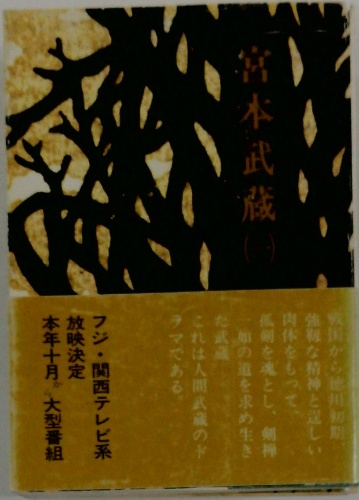 宮本武蔵(一)
戦国から徳川初期、
強靭な精神と逞しい
肉体をもって、
孤剣を魂とし、剣禅
一如の道を求め生き
た武蔵
これは人間武蔵のド
ラマである。
フジ・関西テレビ系
放映決定
本年十月 大型番組